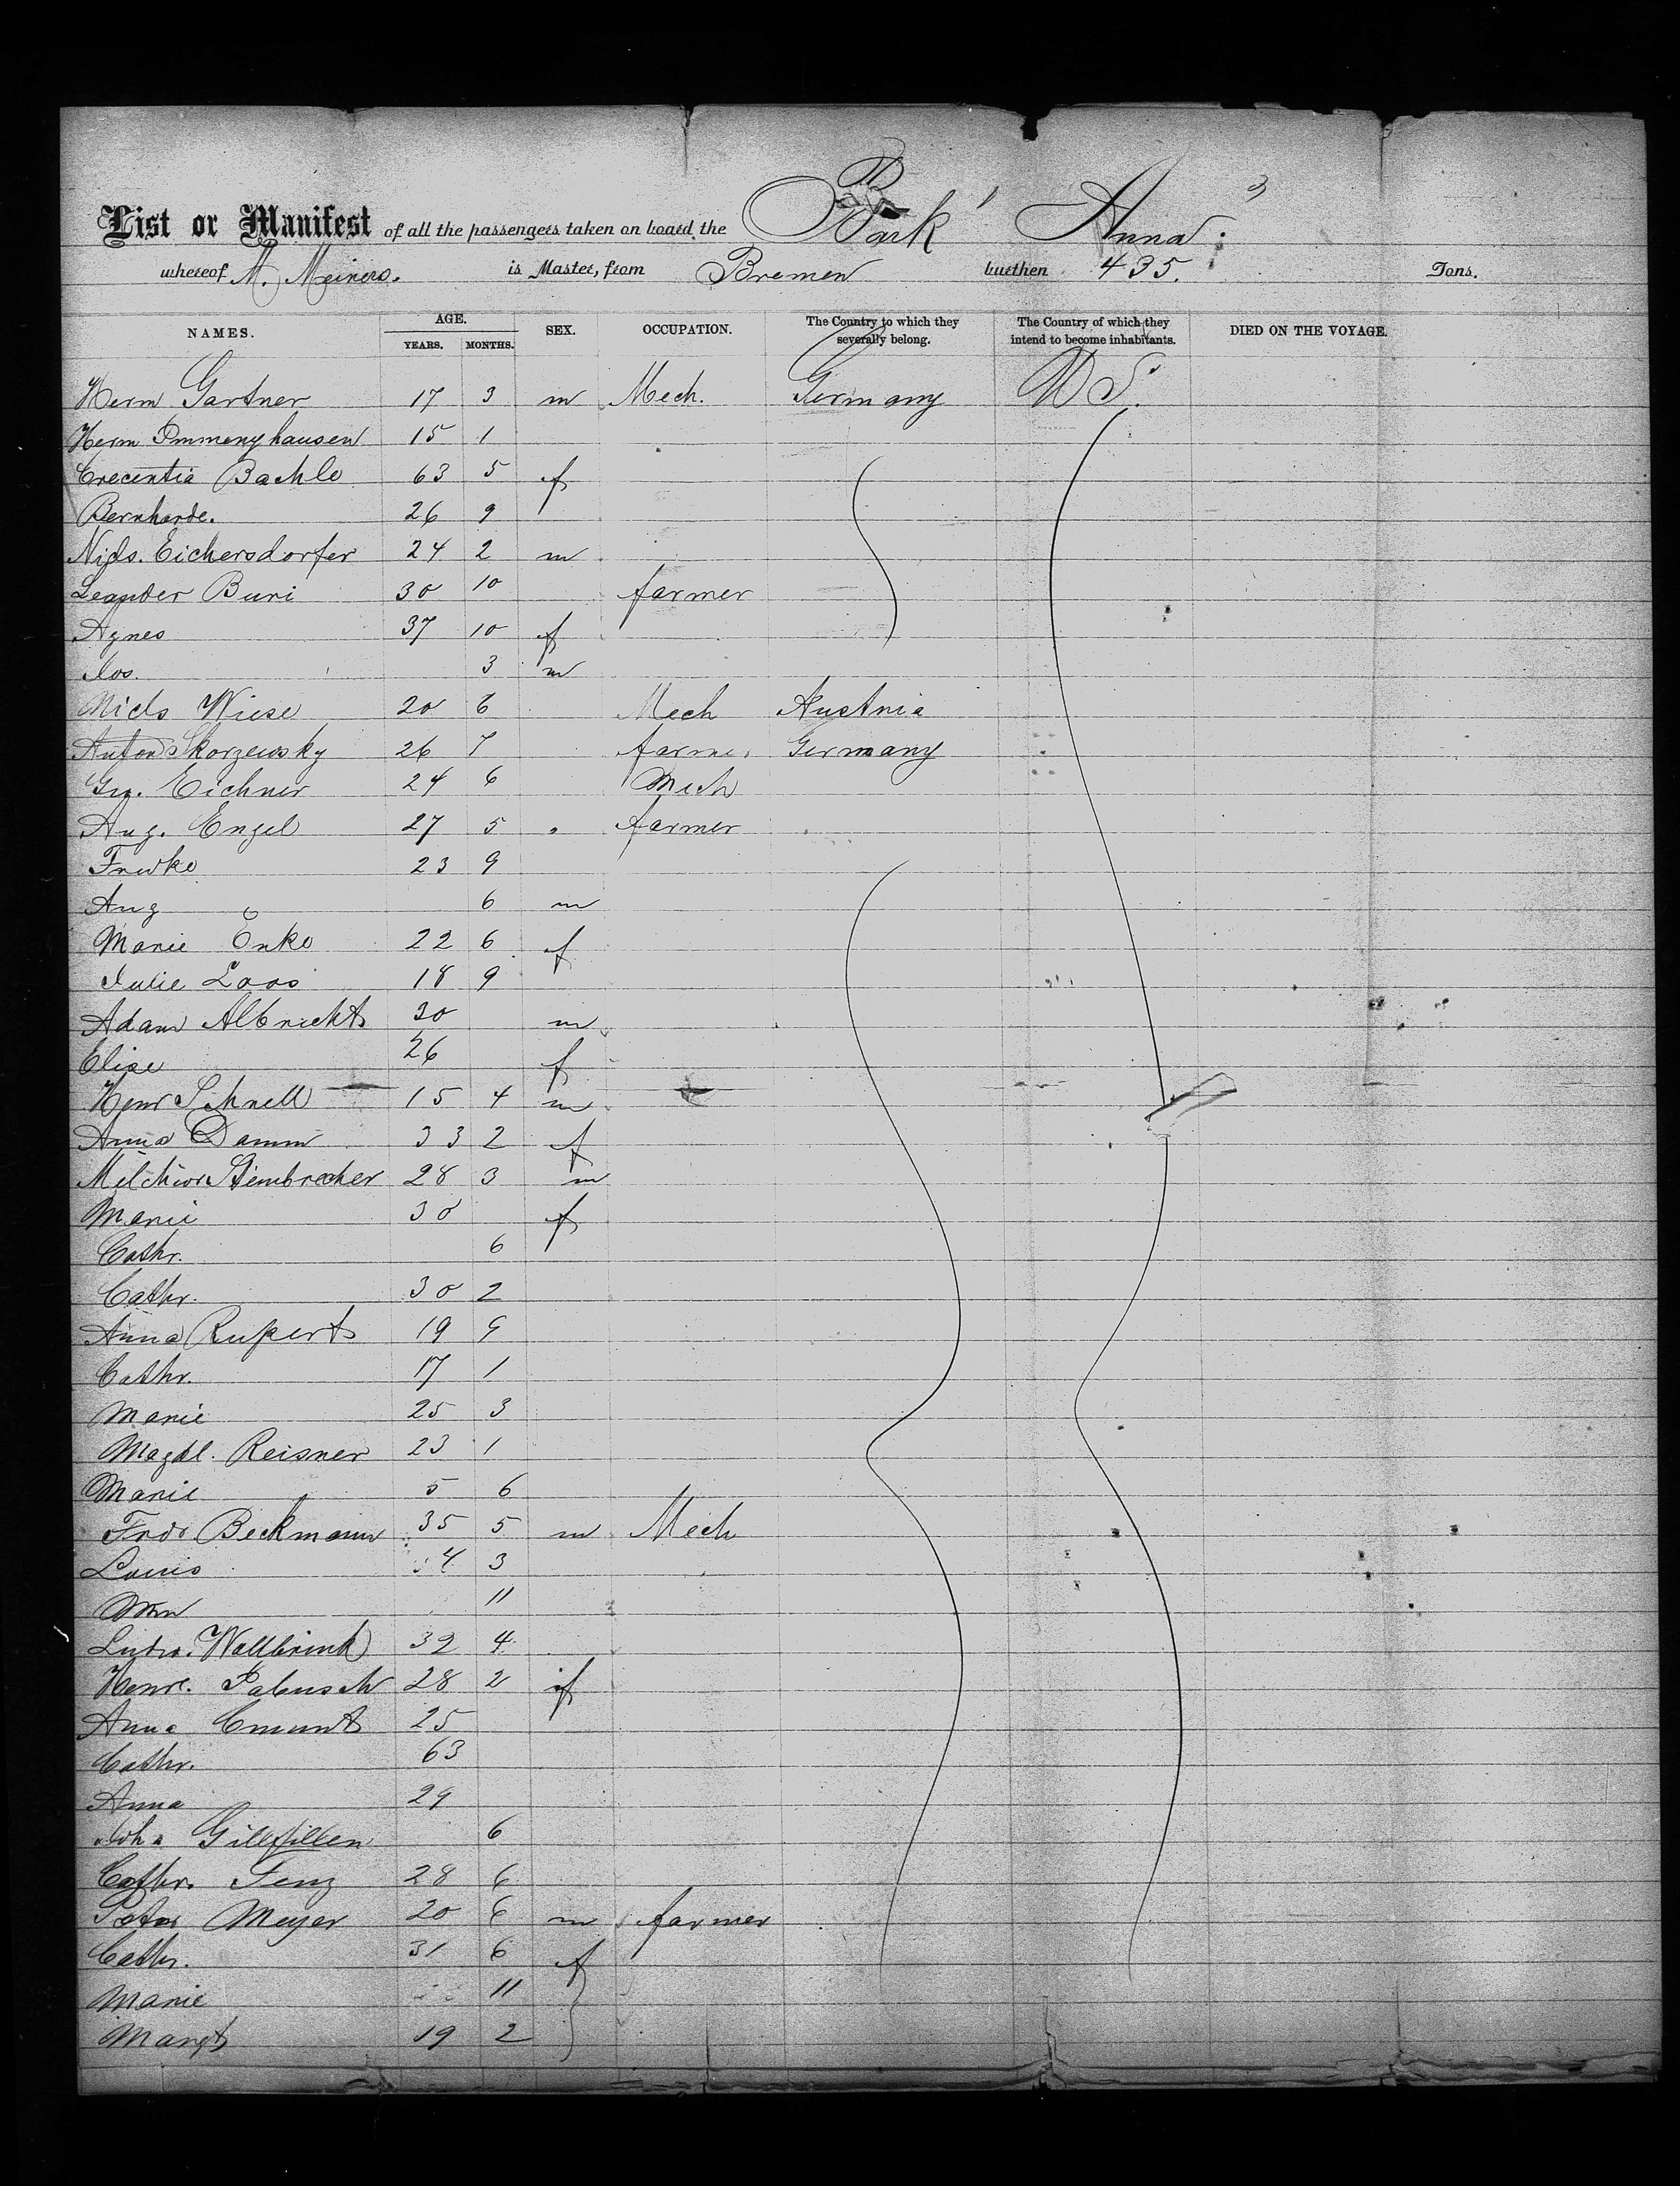 List or Manifest of all the passengers taken on board the Bark Anna
whereof M. Meiners. is Master, from Bremen burthen 435. Tons.
NAMES. AGE. YEARS. MONTHS. SEX. OCCUPATION. The Country to which they severally belong. The Country of which they intend to become inhabitants. DIED ON THE VOYAGE.
Herm Gartner 17 3 m Mech. Germany U S.
Herm Immenghausen 15 1
Crecentia Bachle 63 5 f
Bernharde. 26 9
Eichersdorfer 24 2 m
Leander Buri 30 10 farmer
Agnes 37 10 f
Jos. 3 m
Wiese 20 6 Mech Austria
Anton Skorzewsky 26 7 farmer Germany
Eichner 24 6 Mech
Aug. Engel 27 5 farmer
23 9
Aug 6 m
Marie Enke 22 6 f
Julie Loos 18 9
Adam Albrecht 30 m
Elise 26 f
Henr Schnell 15 4 m
Anna Damm 33 2 f
Melchior Steinbrecher 28 3 m
Marie 30 f
Cathr. 6
Cathr. 30 2
Anna Rupert 19 9
Cathr. 17 1
Marie 25 3
Magdl. Reisner 23 1
Marie 5 6
Frdr Beckmann 35 5 m Mech
Louis 4 3
Wm 11
Ludw. Wallbrink 32 4
Henr. 28 2 f
Anna 25
Cathr. 63
Anna 29
Gillfillen 6
Cathr. Fenz 28 6
Peter Meyer 20 6 m farmer
Cathr. 31 6 f
Marie 11
Margt 19 2